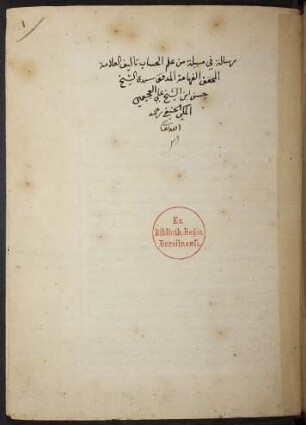 ١
رسالة في مسيلة من علم الحساب تاليف العلامة
المحقق الفهامة المدقق سيدي الشيخ
حسن ابن الشيخ علي العجيمي
المكي الحنفي رحمه
الله تعالى
Ex
Biblioth. Regia
Berolinensi.